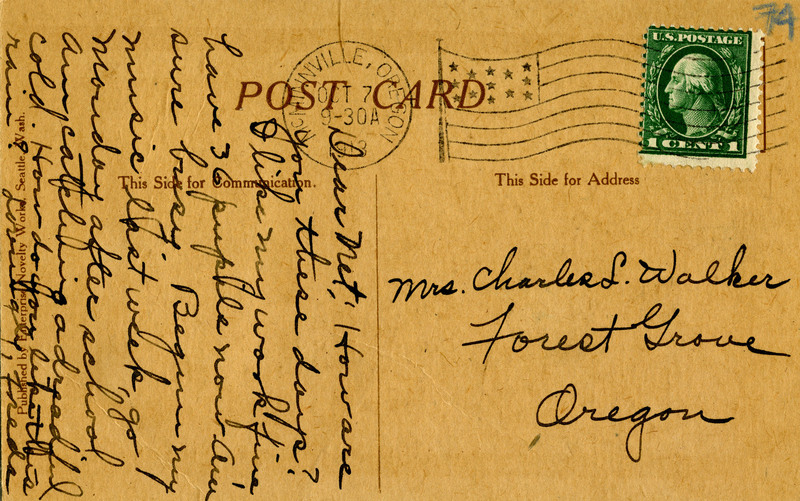 POST CARD
McMINNVILLE, OREGON
OCT 7
9-30A
U.S. POSTAGE
1 CENT 1
74
This Side for Communication.
This Side for Address
Dear Net; How are
you these days?
I like my work fine
have 36 pupils now Am
sure busy. Began my
music last week, go
Monday after school
Am catching a dreadful
cold. How do you like this
rain?
Mrs. Charles L. Walker
Forest Grove
Oregon
Published by Enterprise Novelty Works, Seattle, Wash.